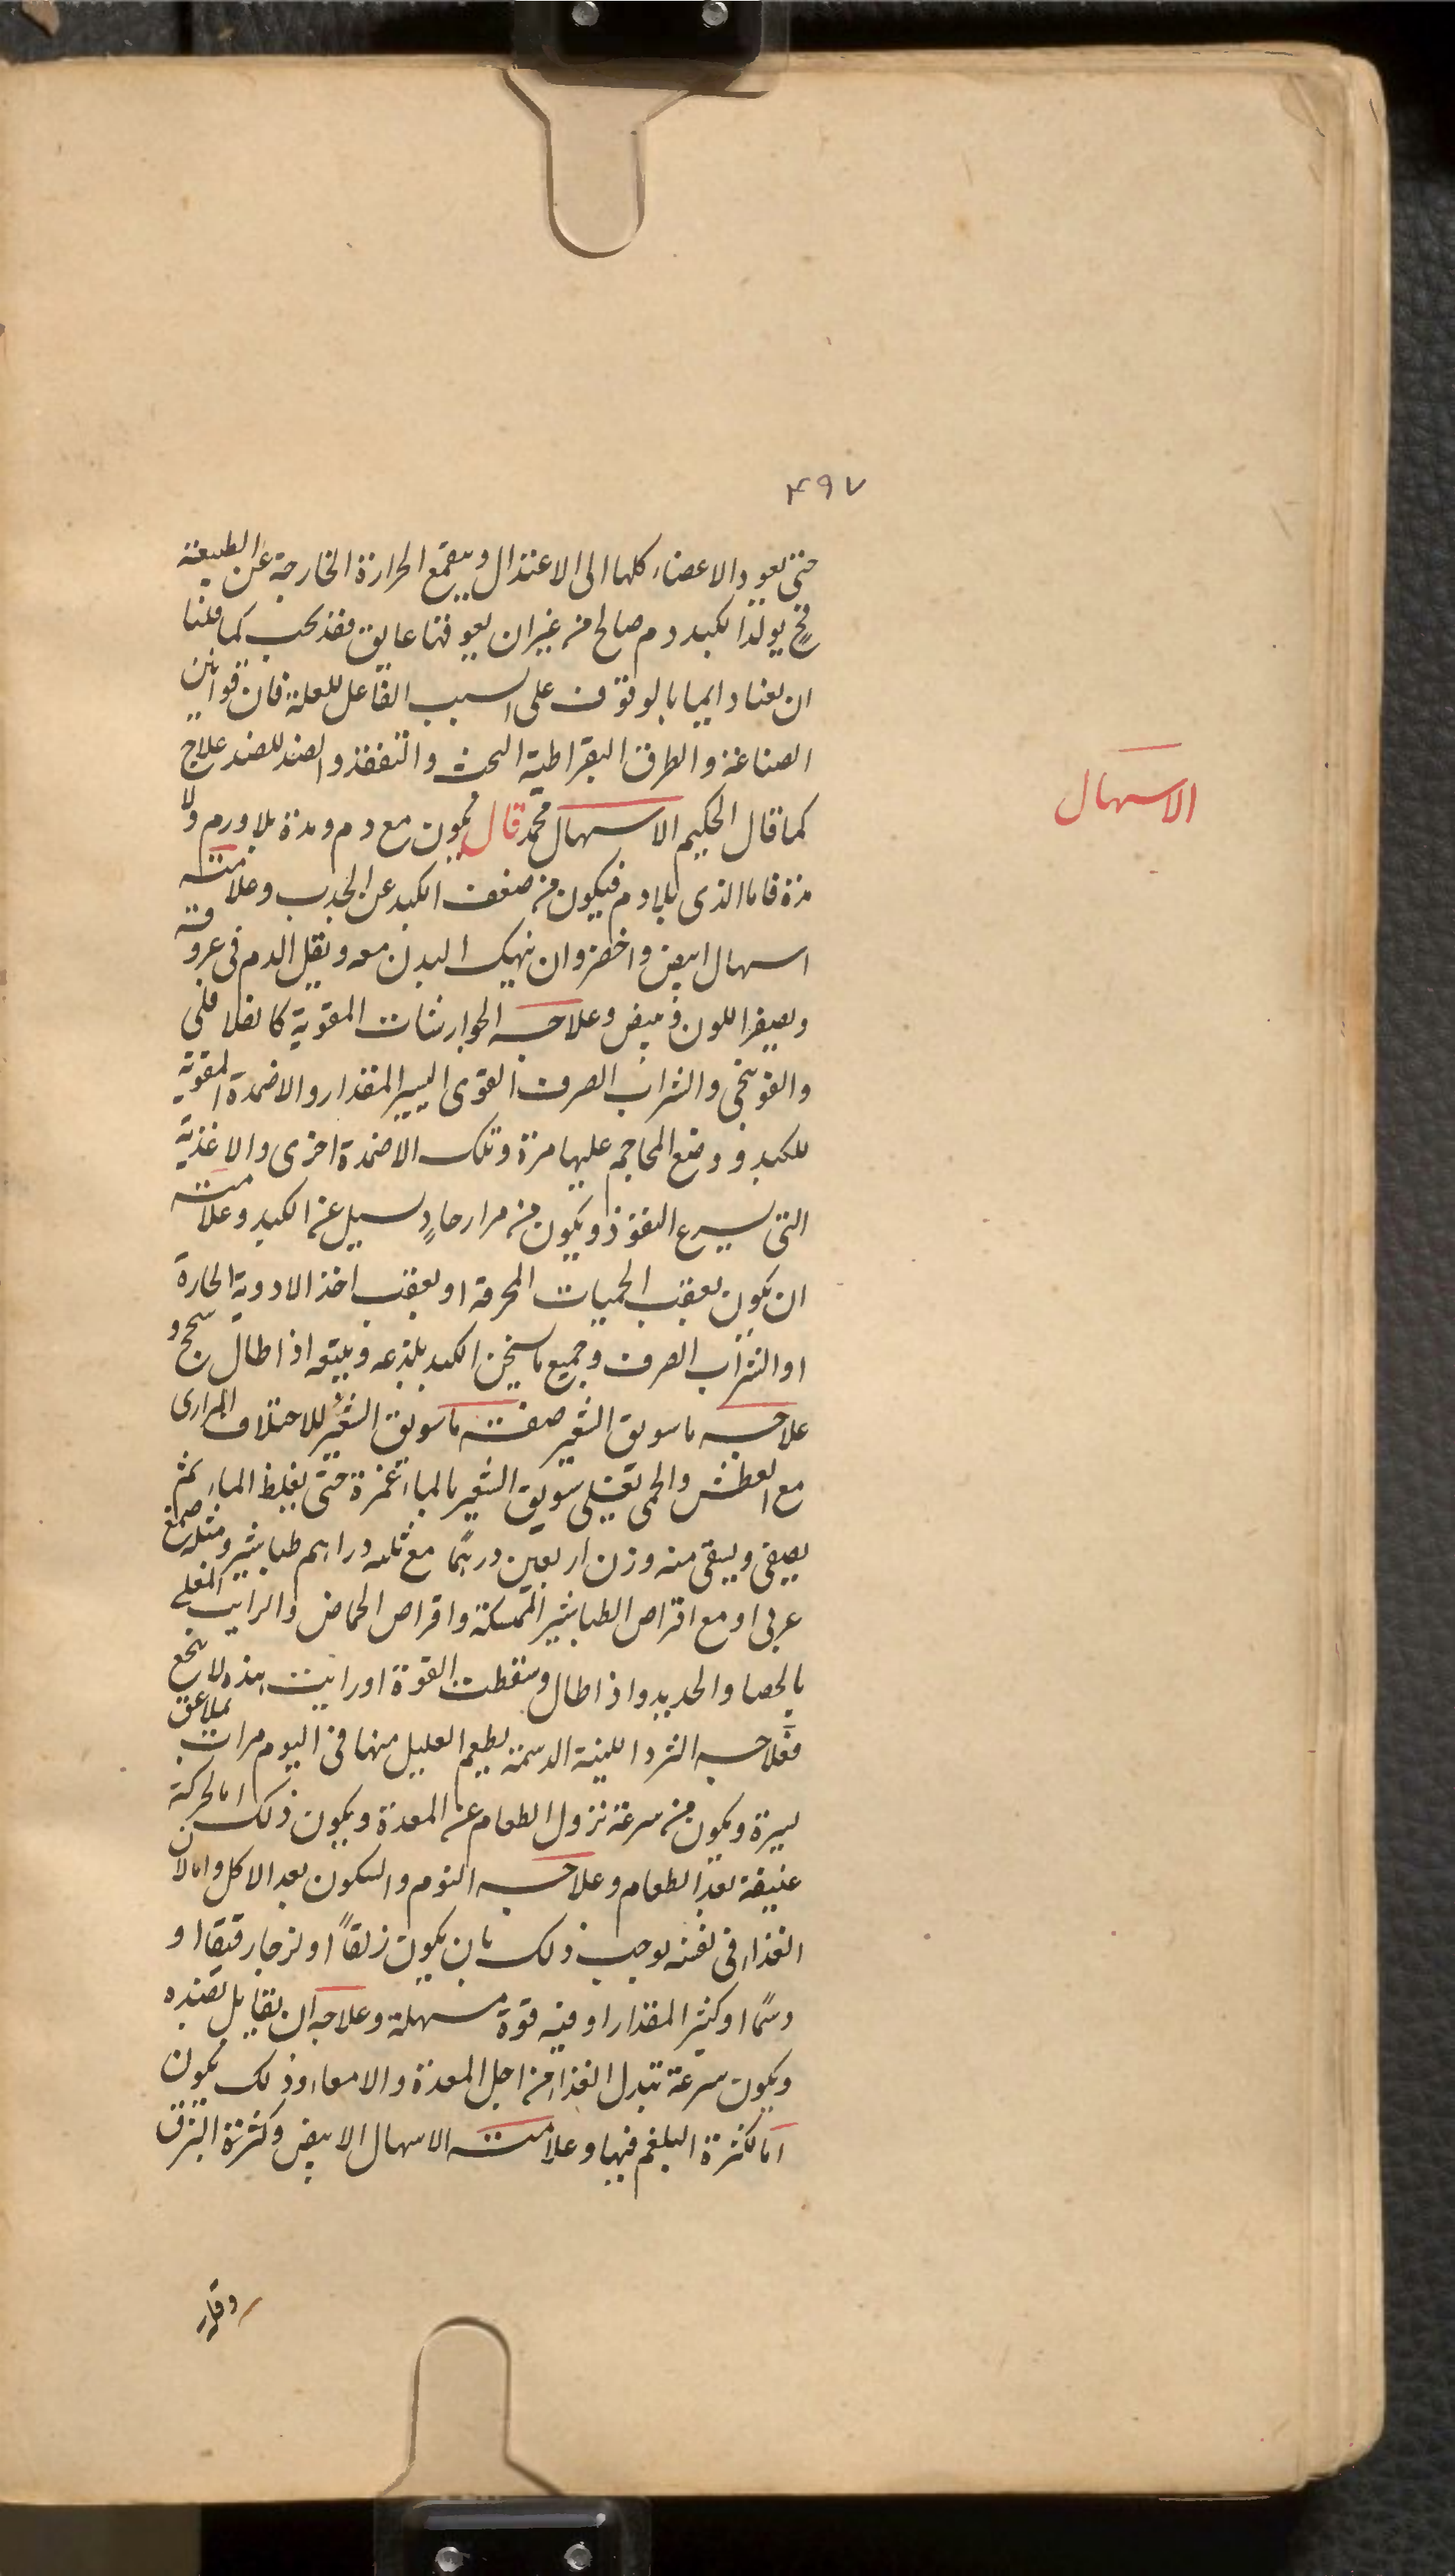 ٤٩٧
حتى يعود الاعضاء كلها الى الاعتدال وينقمع الحرارة الخارجة عن الطبيعة
فح يولد الكبد دم صالح من غير ان يعوقنا عايق فقد يجب كما قلنا
ان نعنا دايما بالوقوف على السبب الفاعل للعلة فان قوانين
الصناعة والطرق البقراطية البحث والتفقد والضد للضد علاج
كما قال الحكيم الاسهال قال محمد يكون مع دم ومدة بلا ورم ولا
الاسهال
مدة فاما الذى بلا دم فيكون من ضعف الكبد عن الجذب وعلامته
اسهال ابيض واخضر وان ينهك البدن معه ويقل الدم فى عروقه
ويصير اللون ابيض وعلاجه الجوارشنات المقوية كالفلافلى
والفوتنجى والشراب الصرف القوى اليسير المقدار والاضمدة المقوية
للكبد ووضع المحاجم عليها مرة وتلك الاضمدة اخرى والاغذية
التى يسرع النفوذ ويكون من مرار حادٍ يسيل عن الكبد وعلامته
ان يكون بعقب الحميات المحرقة او بعقب اخذ الادوية الحارة
او الشراب الصرف وجميع ما يسخن الكبد بلذعه ويتبعه اذا طال سحج و
علاجه ما سويق الشعير صفت ما سويق الشعير للاختلاف المرارى
مع العطش والحمى تغلى سويق الشعير بالماء غمرة حتى يغلظ الماء ثم
يصفى ويسقى منه وزن اربعين درهما مع ثلثه دراهم طباشير ومثله صمغ
عربى او مع اقراص الطباشير الممسكة واقراص الحماض والرايب المغلى
بالحصا والحديد واذا طال وسقطت القوة او رايت هذه لا ينجع
فعلاجه الثرد اللينة الدسمة يطعم العليل منها فى اليوم مرات بملاعق
يسيرة ويكون من سرعة نزول الطعام عن المعدة ويكون ذلك اما لحركة
عنيفة بعد الطعام وعلاجه النوم والسكون بعد الاكل واما لان
الغذاء فى نفسه يوجب ذلك بان يكون زلقاً او لزجا رقيقا او
دسمًا او كثير المقدار او فيه قوة مسهلة وعلاجه ان يقابل بضده
ويكون سرعة تبدل الغذاء من اجل المعدة والامعاء وذلك يكون
اما لكثرة البلغم فيها وعلامته الاسهال الابيض وكثرة البزق